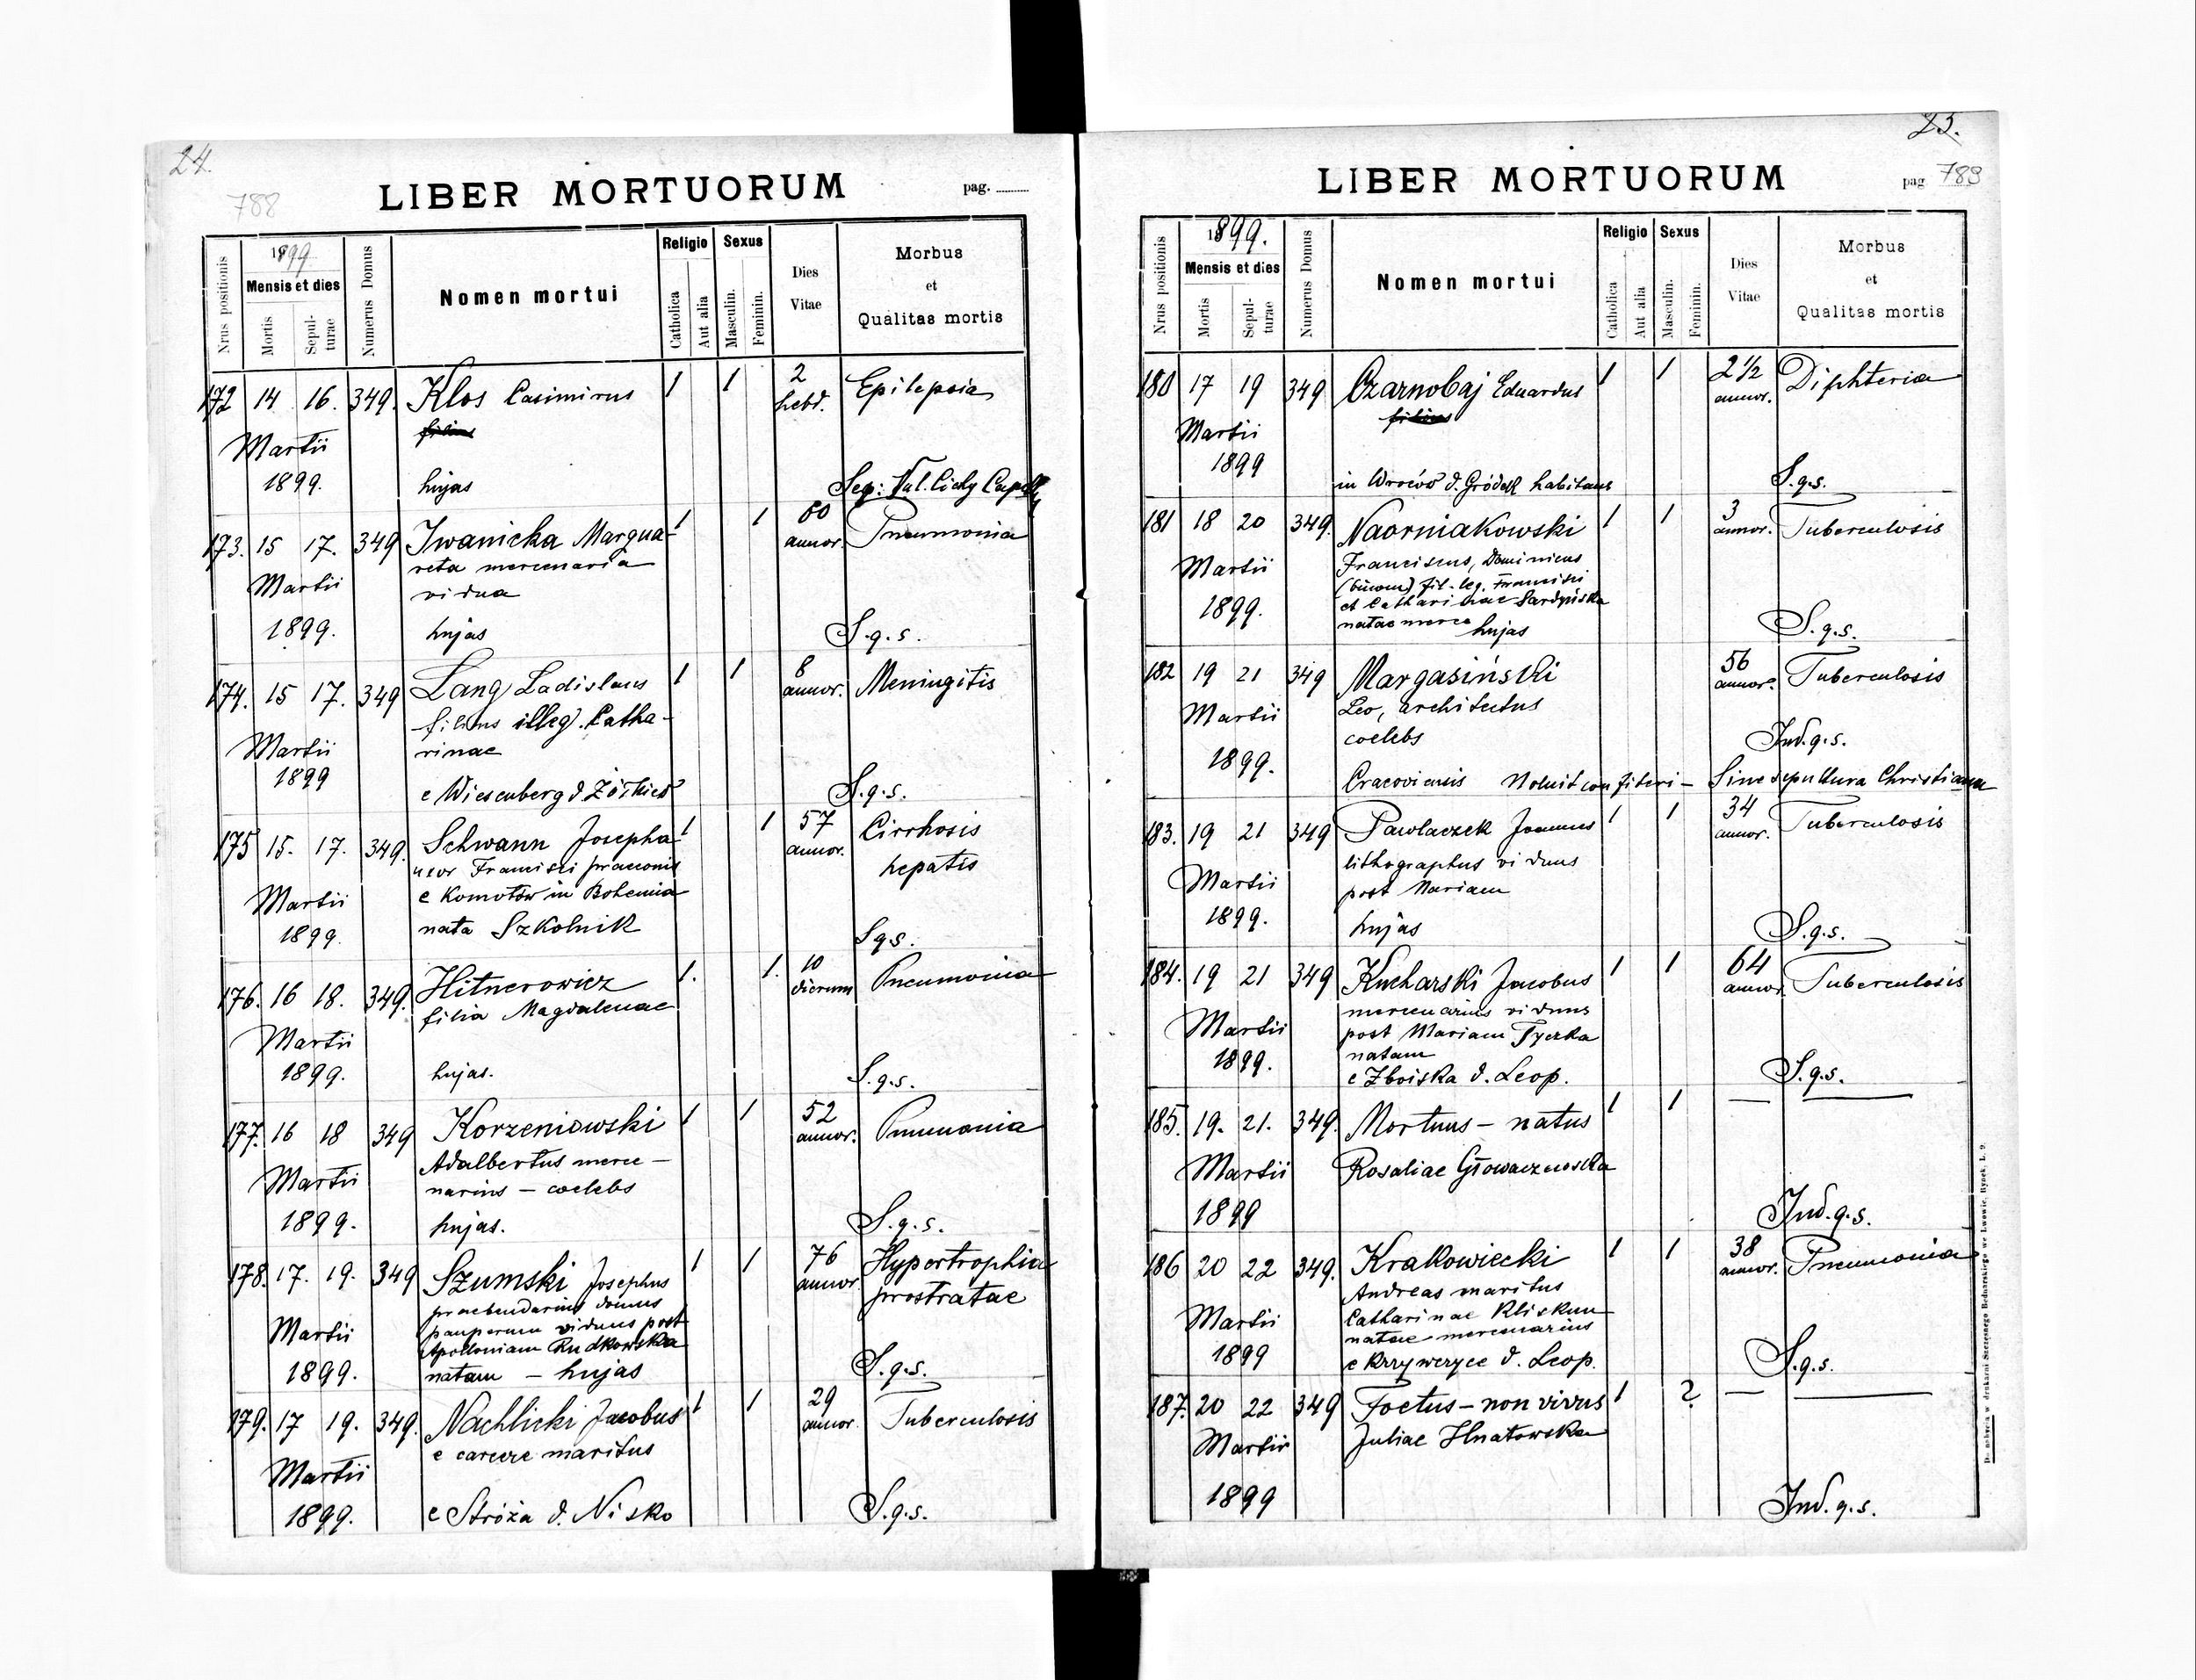 24.
788
LIBER MORTUORUM
pag.
Nrus positionis
1899
Mensis et dies
Mortis
Sepul-
turae
Numerus Domus
Nomen mortui
Religio
Catholica
Aut alia
Sexus
Masculin.
Feminin.
Dies
Vitae
Morbus
et
Qualitas mortis
172 14 16. 349. Klos Casimirus 1 1 2 hebd. Epilepsia
filius
Martii
1899. hujas
Sep: Val. Cichy
173. 15 17. 349 Iwanicka Margua- 1 1 60 annor. Pneumonia
reta mercenaria
Martii vidua
1899. hujas S.q.s.
174. 15 17. 349 Lang Ladislaus 1 1 8 annor. Meningitis
filius illeg. Catha-
Martii rinae
1899 e Wiesenberg d. Żółkiew S.q.s.
175 15. 17. 349. Schwann Josepha 1 1 57 annor. Cirrhosis
uxor Francisci praeconis hepatis
Martii e Komotów in Bohemia
1899. nata Szkolnik Sqs.
176. 16 18. 349. Hitnerowicz 1. 1. 10 dierum Pneumonia
filia Magdalenae
Martii
1899. hujas. S.q.s.
177. 16 18 349 Korzeniowski 1 1 52 annor. Pneumonia
Adalbertus merce-
Martii narius – coelebs
1899. hujas. S.q.s.
178. 17. 19. 349 Szumski Josephus 1 1 76 annor. Hypertrophia
praebendarius domus prostratae
Martii pauperum viduus post
Apolloniam Rudkowska
1899. natam – hujas S.q.s.
179. 17 19. 349. Nachlicki Jacobus 1 1 29 annor. Tuberculosis
e carcere maritus
Martii
1899. e Stróża d. Nisko S.q.s.
25.
LIBER MORTUORUM
pag 789
Nrus positionis
1899.
Mensis et dies
Mortis
Sepul-
turae
Numerus Domus
Nomen mortui
Religio
Catholica
Aut alia
Sexus
Masculin.
Feminin.
Dies
Vitae
Morbus
et
Qualitas mortis
180 17 19 349 Czarnobaj Eduardus 1 1 2 1/2 annor. Diphteria
filius
Martii
1899 in Wroców d. Gródek habitans S.q.s.
181 18 20 349. Naorniakowski 1 1 3 annor. Tuberculosis
Martii Franciscus, Dominicus
(binom) fil. leg. Francisci
1899. et Catharinae Sardyńska
natae merce hujas S.q.s.
182 19 21 349 Margasiński 56 annor. Tuberculosis
Martii Leo, architectus
coelebs Ind.q.s.
1899. Cracoviensis Noluit confiteri – Sine sepultura Christiana
183. 19 21 349 Pawlaczek Joannes 1 1 34 annor. Tuberculosis
lithographus viduus
Martii post Mariam
1899. hujas S.q.s.
184. 19 21 349 Kucharski Jacobus 1 1 64 annor. Tuberculosis
mercenarius viduus
Martii post Mariam Tyczka
natam
1899. e Zboiska d. Leop. S.q.s.
185. 19. 21. 349. Mortuus – natus 1 1 — —
Martii Rosaliae Głowaczewska
1899 Ind.q.s.
186 20 22 349. Krakowiecki 1 1 38 annor. Pneumonia
Andreas maritus
Martii Catharinae
natae mercenarius
1899 e Krzywczyce d. Leop. S.q.s.
187. 20 22 349 Foetus – non vivus 1 ? — —
Martii Juliae Hnatowska
1899 Ind.q.s.
Do nabycia w drukarni Szczęsnego Bednarskiego we Lwowie, Rynek, L. 9.